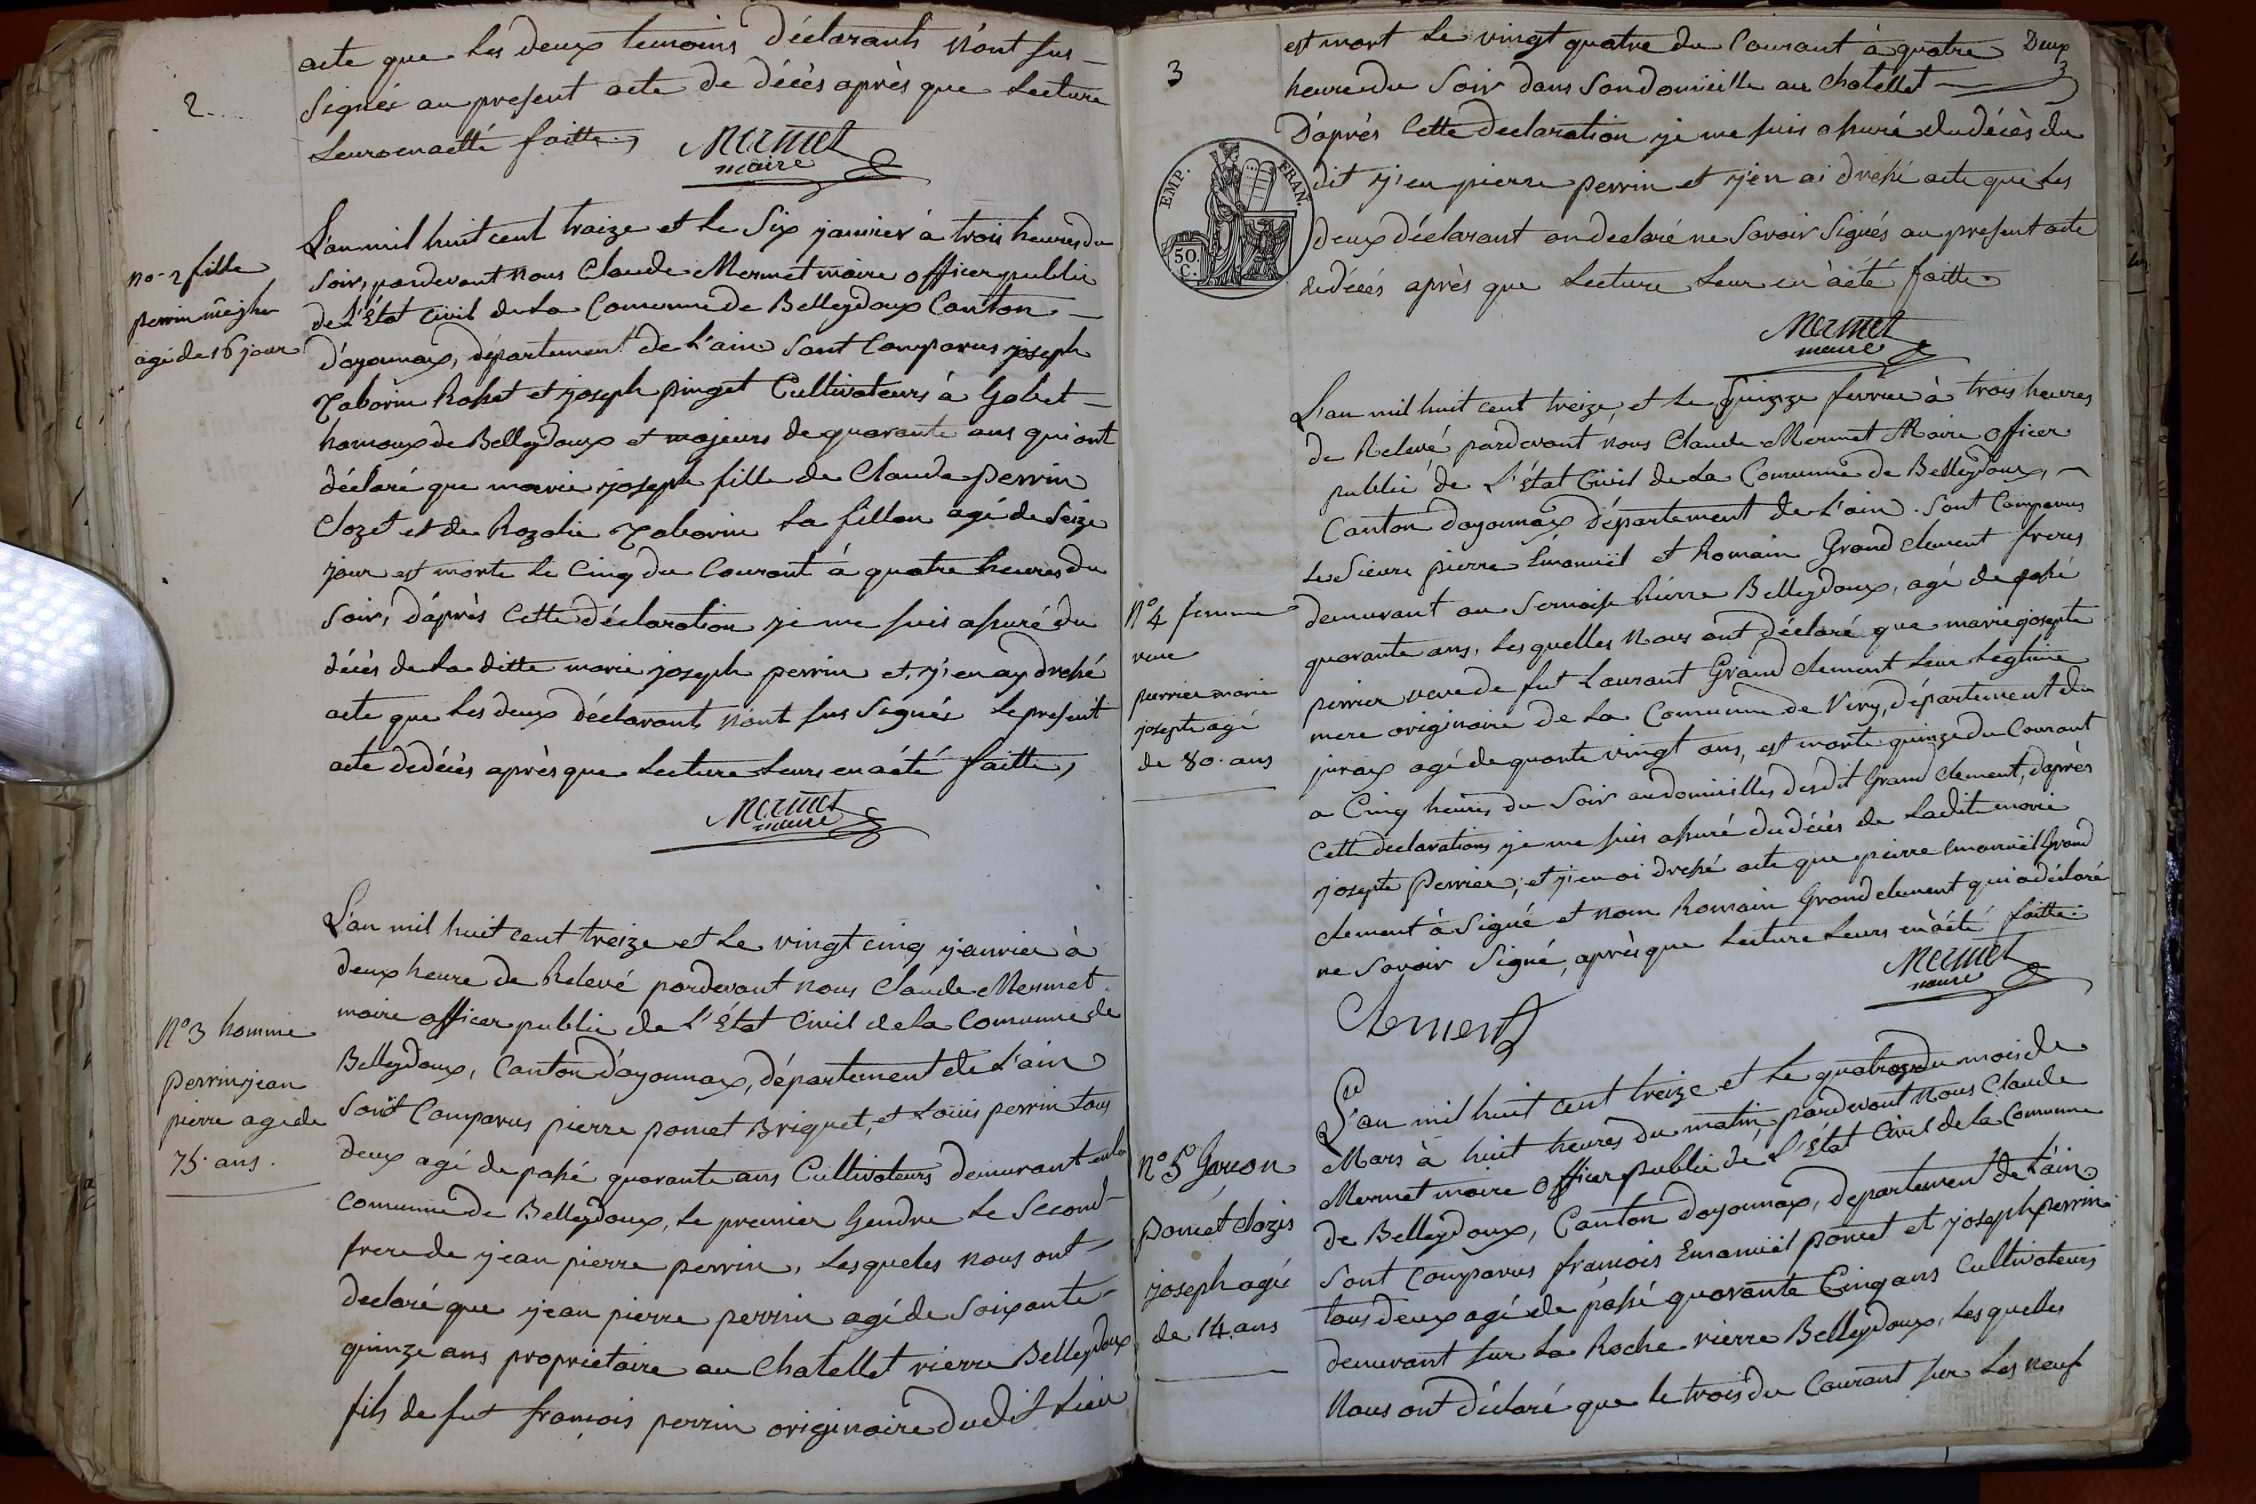 2
acte que les deux temoins déclarants n'ont sus
signéi au present acte de décès après que lecture
leurs en a été faitte,
Mermet
maire
no. 2 fille
perrin
agé de 16 jour
L'an mil huit cent traize et le Six janvier à trois heures du
soir, pardevant nous Claude Mermet maire officer public
de l'Etat civil de la Comunne de Belleydoux Canton
d'ayonnax, département de l'ain sont Comparus joseph
Taborin Rosset et joseph pinget Cultivateurs à Gobet
hamoux de Belleydoux et majeurs de quarante ans qui ont
déclaré que marie joseph fille de Claude perrin
Clozet et de Rozalie Taborin la fillon agé de Seize
jour est morte le Cinq du Courant à quatre heures du
soir, d'après Cette déclaration je me suis assuré du
décès de la ditte marie joseph perrin et j'en ay dressé
acte que les deux déclarant n'ont sus Signés le present
acte de décès après que lecture leurs en a été faitte,
Mermet
maire
No 3 homme
perrin jean
pierre agé de
75. ans.
L'an mil huit cent treize et le vingt cinq janvier à
deux heure de Relevé pardevant nous Claude Mermet
maire officer public de l'État Civil de la Comunne de
Belleydoux, Canton d'ayonnax, département de l'ain
sont Comparus pierre poncet Briguet, et Loüis perrin tous
deux agé de passé quarante ans Cultivateurs demurant en la
Comunne de Belleydoux, le premier Gendre le Second
frere de jean pierre perrin, lesqueles nous ont
declaré que jean pierre perrin agé de soixante
quinze ans proprietaire au Chatellet rierre Belleydoux
fils de fut françois perrin originaire dudit Lieu
3
Deux
3
est mort le vingt quatre du Courant à quatre
heure du Soir dans Son domicille au Chatellet
D'après Cette declaration je me suis assuré du décès du
dit j'en pierre perrin et j'en ai dressé acte que les
deux déclarant on declaré ne Savoir Signés au present acte
de décés après que lecture leur en à été faitte
Mermet
maire
EMP. FRAN.
50. C.
L'an mil huit cent treize et le quinze fevrier à trois heures
de Relevé pardevant nous Claude Mermet Maire officer
public de L'état Civil de la Comunne de Belleydoux,
Canton d'ayonnax département de l'ain. Sont Comparus
Le Sieurs pierre Emanuïel et Romain Grand clement freres
demurant au Sernoise rierre Belleydoux, agé de passé
quarante ans, lesquelles nous ont déclaré que marie josepte
perrier veuve de fut Laurant Grand clement leur legtime
mere originaire de la Comunne de Viry, département du
juraix agé de quonte vingt ans, est morte quinze du Courant
a Cinq heures du Soir au domicilles desdit Grand clement, d'après
Cette declarations je me suis assuré du décés de ladite marie
josepte Perrier, et j'en ai dressé acte que pierre emanuïel Grand
clement à Signé et nom Romain Grand clement qui a déclaré
ne Savoir Signé, après que lecture leurs en à été faitte.
Mermet
maire
Clement
No 4 femme
veuve
perrier marie
josepte agé
de 80. ans
L'an mil huit cent treize et le quatorze du mois de
Mars à huit heures du matin pardevant nous Claude
Mermet maire officer public de l'État Civil de la Comunne
de Belleydoux, Canton d'ayonnax, departement de l'ain
Sont Comparus francois Emanuïel poncet et joseph perrin
tous deux agé de passé quarante Cinq ans Cultivateurs
demurant sur la Roche rierre Belleydoux, lesquelles
nous ont déclaré que le trois du Courant sur les neuf
No 5 Garcon
poncet clozis
joseph agé
de 14. ans